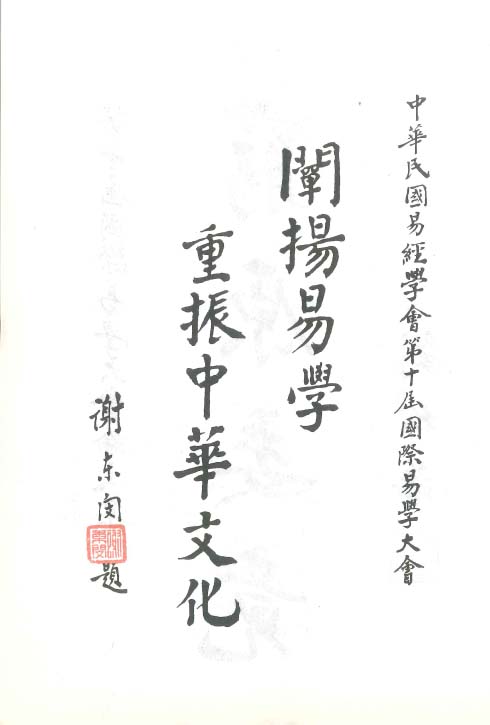 中華民國易經學會第十屆國際易學大會
闡揚易學
重振中華文化
謝东閔題
謝東閔